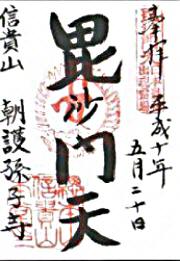 奉拝 平成十年
五月二十日
毘沙門天
信貴山 朝護孫子寺